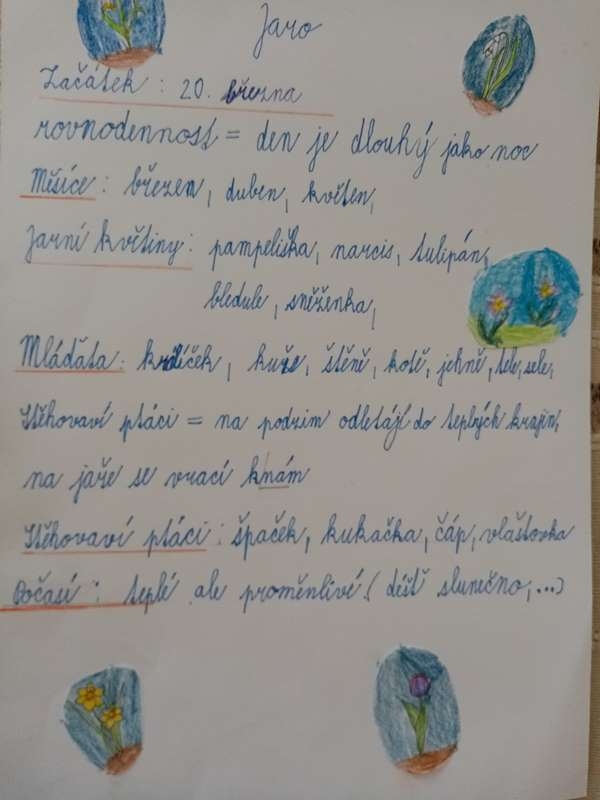 Jaro
Začátek : 20. března
rovnodennost = den je dlouhý jako noc
Měsíce : březen, duben, květen,
Jarní květiny : pampeliška, narcis, tulipán,
bledule, sněženka,
Mláďata : králíček, kuře, štěně, kotě, jehně, tele, sele,
Stěhovaví ptáci = na podzim odletájí do teplých krajin,
na jaře se vrací k nám
Stěhovaví ptáci : špaček, kukačka, čáp, vlaštovka
Počasí : teplé ale proměnlivé ( déšť slunečno, ...)